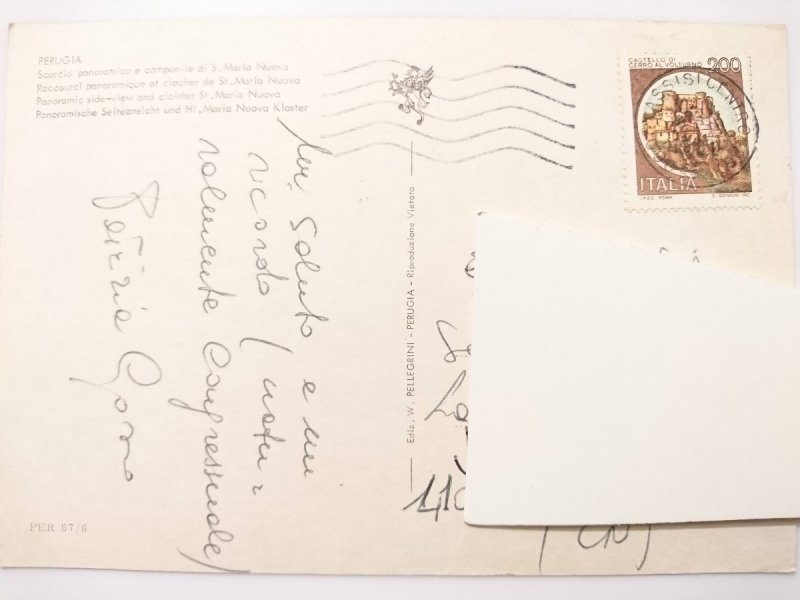 PERUGIA
Scorcio panoramico e campanile di S. Maria Nuova
Raccourci panoramique et clocher de St. Maria Nuova
Panoramic side-view and cloister St. Maria Nuova
Panoramische Seiteansicht und Hl. Maria Nuova Kloster
un saluto e un
ricordo (natu=
ralmente congressuale)
PER 67/6
Ediz. W. PELLEGRINI - PERUGIA - Riproduzione Vietata
CASTELLO DI
CERRO AL VOLTURNO 200
ITALIA
I.P.Z.S. ROMA
ASSISI CENTRO
(CN)